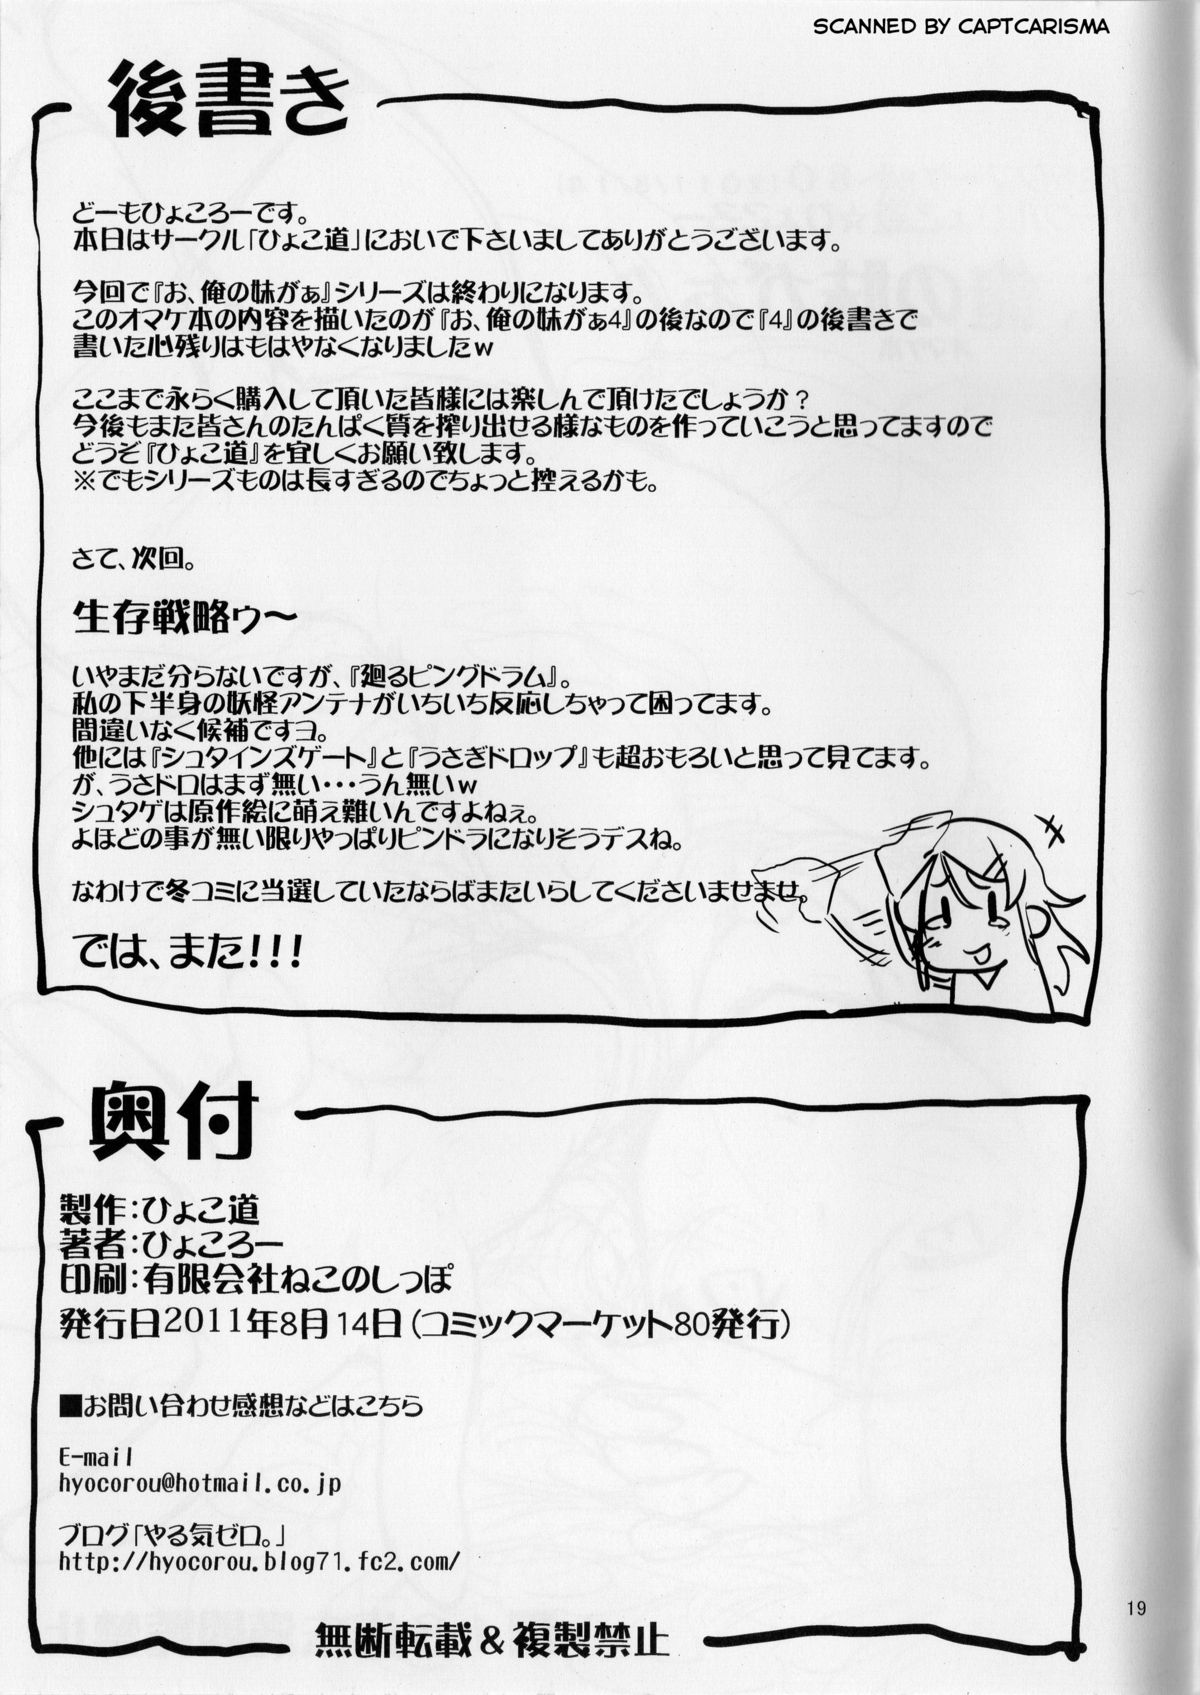 SCANNED BY CAPTCARISMA
後書き
どーもひょころーです。
本日はサークル「ひょこ道」においで下さいましてありがとうございます。
今回で『お、俺の妹がぁ』シリーズは終わりになります。
このオマケ本の内容を描いたのが『お、俺の妹がぁ4』の後なので『4』の後書きで
書いた心残りはもはやなくなりましたw
ここまで永らく購入して頂いた皆様には楽しんで頂けたでしょうか?
今後もまた皆さんのたんぱく質を搾り出せる様なものを作っていこうと思ってますので
どうぞ『ひょこ道』を宜しくお願い致します。
※でもシリーズものは長すぎるのでちょっと控えるかも。
さて、次回。
生存戦略ゥ〜
いやまだ分らないですが、『廻るピングドラム』。
私の下半身の妖怪アンテナがいちいち反応しちゃって困ってます。
間違いなく候補ですヨ。
他には『シュタインズゲート』と『うさぎドロップ』も超おもろいと思って見てます。
が、うさドロはまず無い・・・うん無いw
シュタゲは原作絵に萌え難いんですよねぇ。
よほどの事が無い限りやっぱりピンドラになりそうデスね。
なわけで冬コミに当選していたならばまたいらしてくださいませませ。
では、また!!!
奥付
製作:ひょこ道
著者:ひょころー
印刷:有限会社ねこのしっぽ
発行日2011年8月14日(コミックマーケット80発行)
■お問い合わせ感想などはこちら
E-mail
hyocorou@hotmail.co.jp
ブログ「やる気ゼロ。」
http://hyocorou.blog71.fc2.com/
19
無断転載&複製禁止